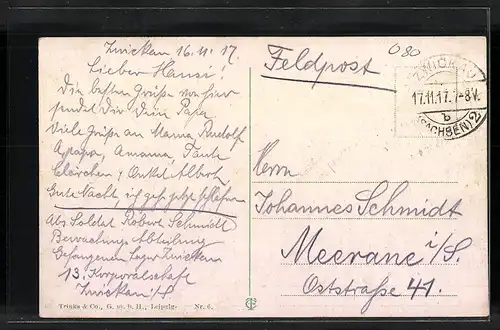 Zwickau 16.11.17.
Lieber Hansi!
Die besten Grüße von hier
sendet Dir Dein Papa
Viele Grüße an Mama, Rudolf
Apapa, Amama, Tante
Clärchen, Onkel Albert
Gute Nacht, ich geh jetzt schlafen
Abs. Soldat Robert Schmidt
Bewachungs Abteilung
Gefangenen Lager Zwickau
13. Korporalschaft
Zwickau i/S
Trinks & Co., G. m. b. H., Leipzig. Nr. 6.
080
Feldpost
ZWICKAU
17.11.17. 7-8V.
b
(SACHSEN) 2
Herrn
Johannes Schmidt
Meerane i/S.
Oststraße 41.